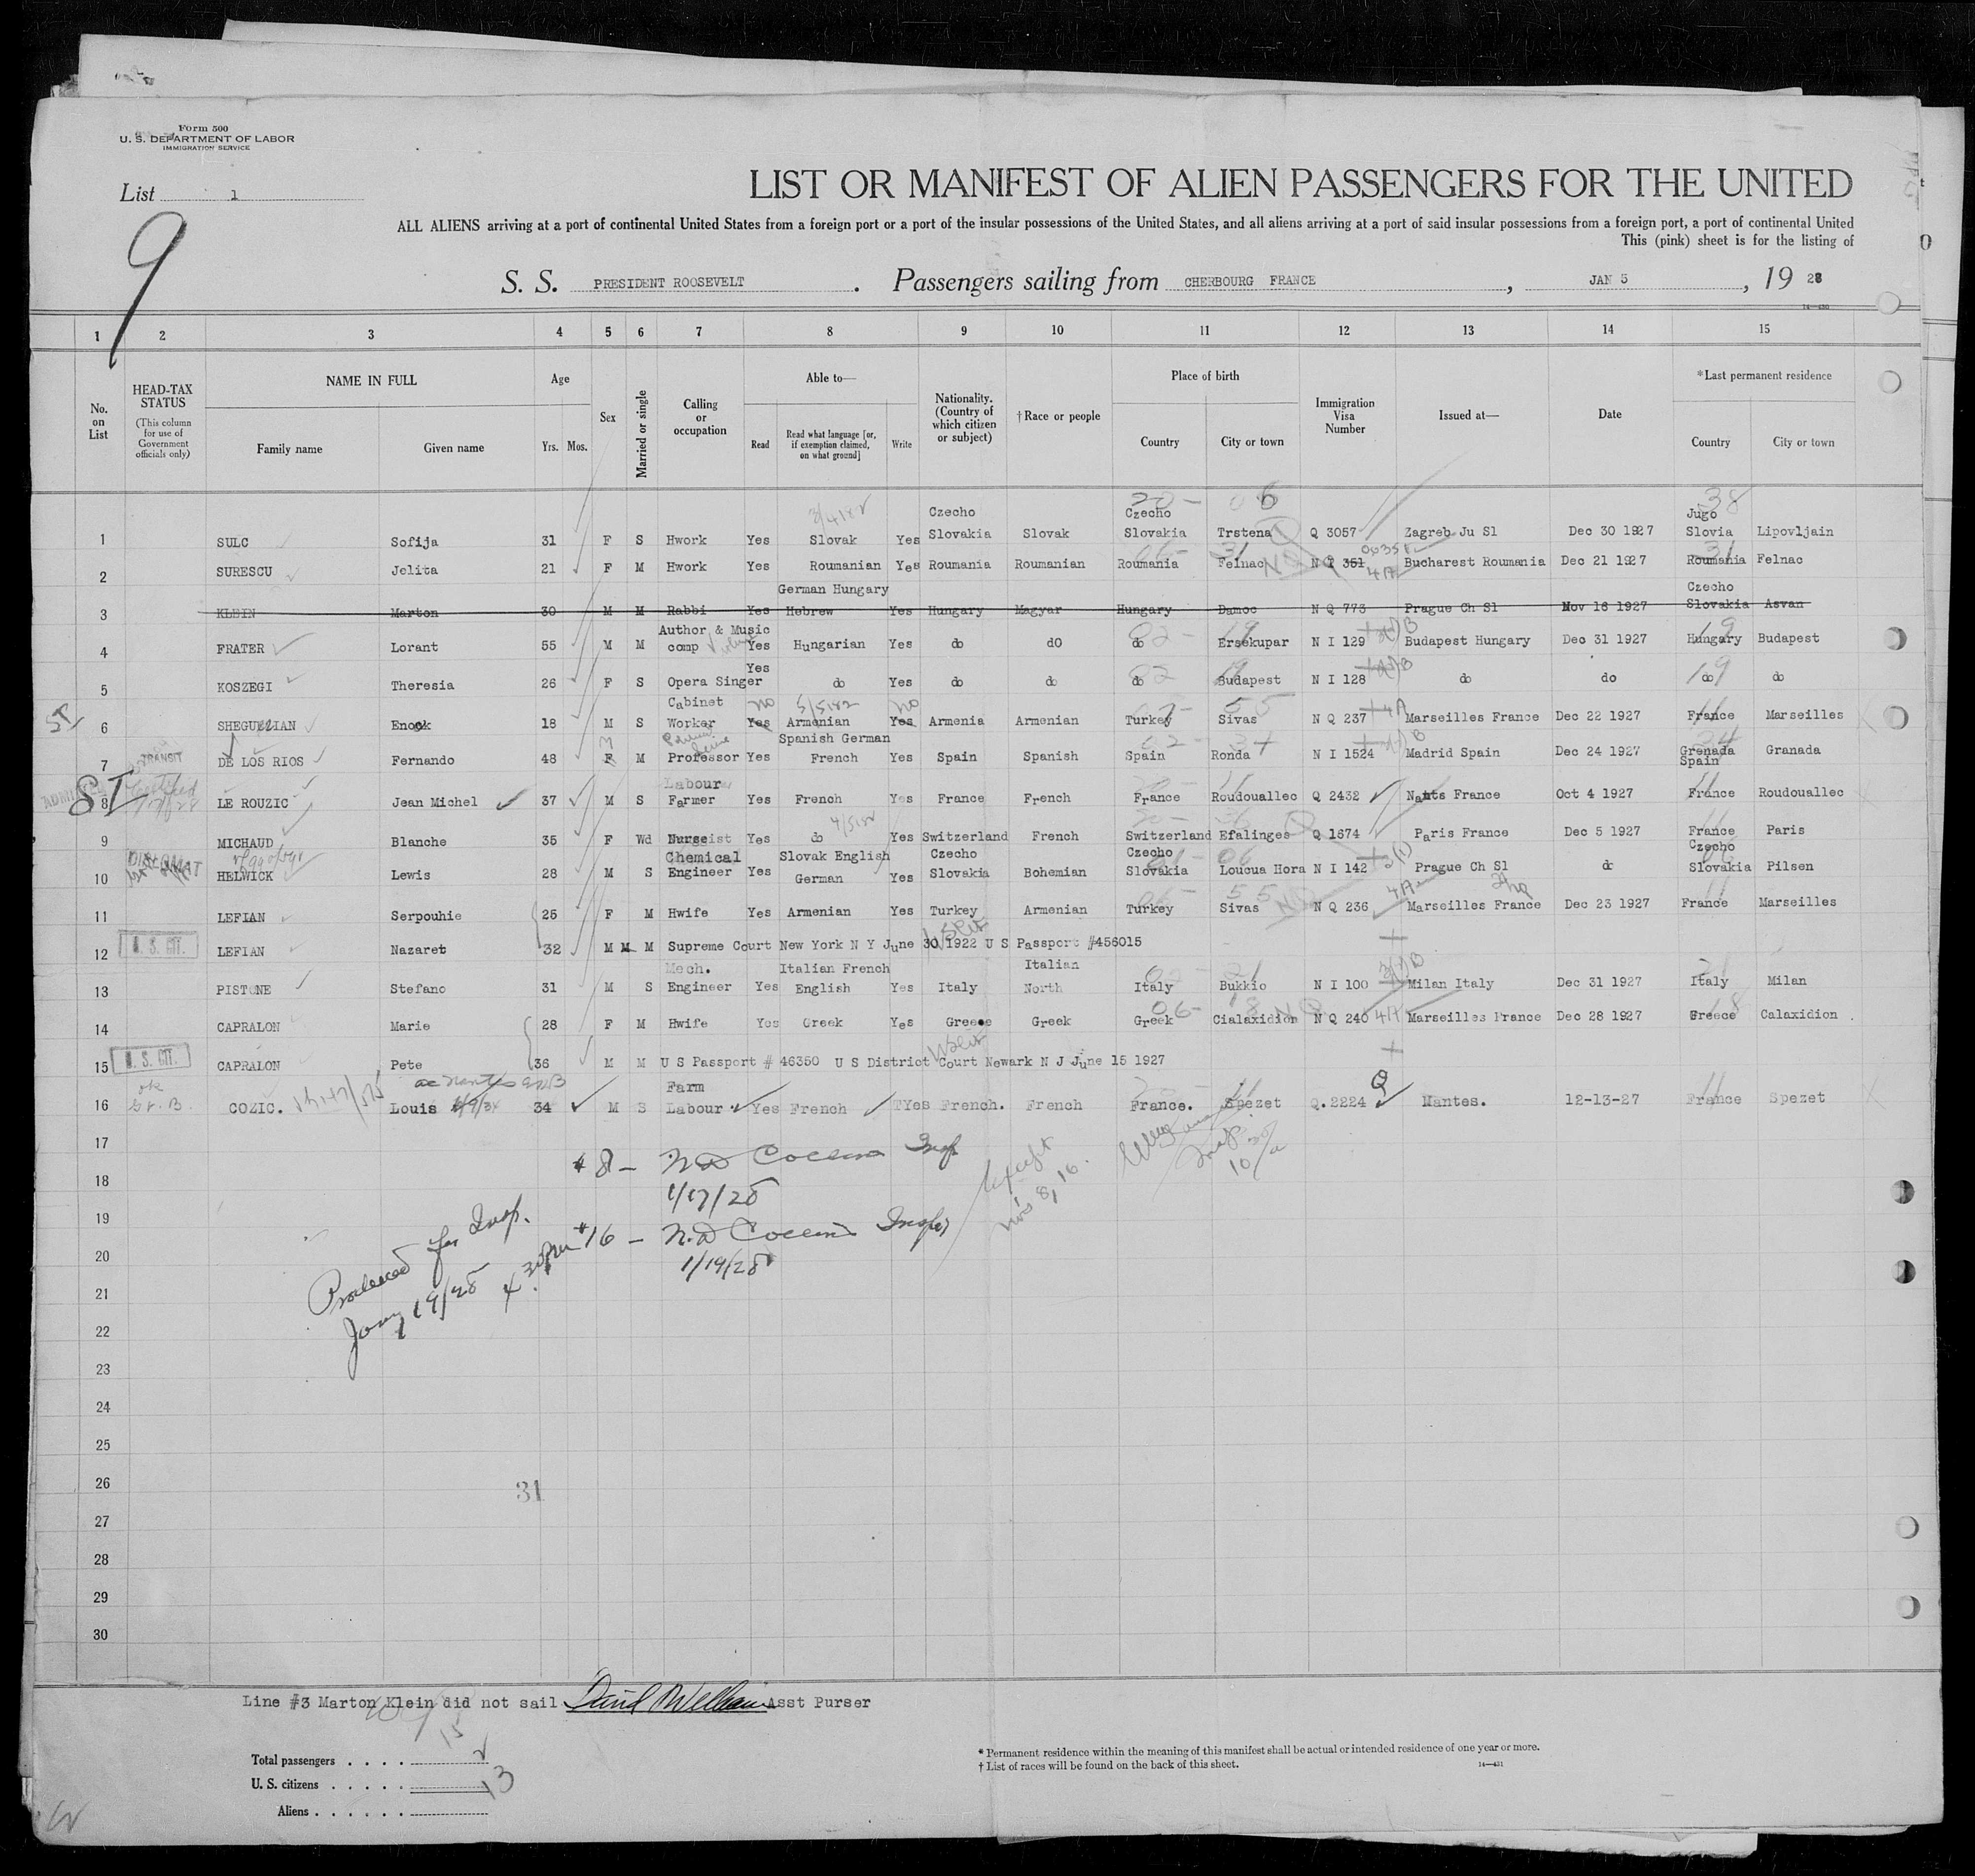 Form 500
U. S. DEPARTMENT OF LABOR
IMMIGRATION SERVICE
List 1
9
LIST OR MANIFEST OF ALIEN PASSENGERS FOR THE UNITED
ALL ALIENS arriving at a port of continental United States from a foreign port or a port of the insular possessions of the United States, and all aliens arriving at a port of said insular possessions from a foreign port, a port of continental United
This (pink) sheet is for the listing of
S. S. PRESIDENT ROOSEVELT . Passengers sailing from CHERBOURG FRANCE , JAN 5 , 19 28
1 2 3 4 5 6 7 8 9 10 11 12 13 14 15
No. on List
HEAD-TAX STATUS (This column for use of Government officials only)
NAME IN FULL
Family name Given name
Age
Yrs. Mos.
Sex
Married or single
Calling or occupation
Able to—
Read
Read what language [or, if exemption claimed, on what ground]
Write
Nationality. (Country of which citizen or subject)
†Race or people
Place of birth
Country City or town
Immigration Visa Number
Issued at—
Date
*Last permanent residence
Country City or town
1 SULC Sofija 31 F S Hwork Yes Slovak Yes Czecho Slovakia Slovak Czecho Slovakia Trstena Q 3057 Zagreb Ju Sl Dec 30 1927 Jugo Slovia Lipovljain
2 SURESCU Jelita 21 F M Hwork Yes Roumanian Yes Roumania Roumanian Roumania Felnac N I 351 Bucharest Roumania Dec 21 1927 Roumania Felnac
3 KLEIN Marton 30 M M Rabbi Yes German Hungary Hebrew Yes Hungary Magyar Hungary Damoc N Q 773 Prague Ch Sl Nov 16 1927 Czecho Slovakia Asvan
4 FRATER Lorant 55 M M Author & Music comp Yes Hungarian Yes do dO do Ersekupar N I 129 Budapest Hungary Dec 31 1927 Hungary Budapest
5 KOSZEGI Theresia 26 F S Opera Singer Yes do Yes do do do Budapest N I 128 do do do do
6 SHEGULLIAN Enock 18 M S Cabinet Worker Yes no Armenian Yes no Armenia Armenian Turkey Sivas N Q 237 4A Marseilles France Dec 22 1927 France Marseilles
7 TRANSIT DE LOS RIOS Fernando 48 F M M Professor Yes Spanish German French Yes Spain Spanish Spain Ronda N I 1524 Madrid Spain Dec 24 1927 Grenada Spain Granada
8 LE ROUZIC Jean Michel 37 M S Labour Farmer Yes French Yes France French France Roudouallec Q 2432 Nants France Oct 4 1927 France Roudouallec
9 MICHAUD Blanche 35 F Wd Yes do Yes Switzerland French Switzerland Efalinges Q 1674 Paris France Dec 5 1927 France Paris
10 DIPLOMAT HELWICK Lewis 28 M S Chemical Engineer Yes Slovak English German Yes Czecho Slovakia Bohemian Czecho Slovakia Loucua Hora N I 142 Prague Ch Sl do Czecho Slovakia Pilsen
11 LEFIAN Serpouhie 25 F M Hwife Yes Armenian Yes Turkey Armenian Turkey Sivas N Q 236 Marseilles France Dec 23 1927 France Marseilles
12 U. S. CIT. LEFIAN Nazaret 32 M M Supreme Court New York N Y June 30 1922 U S Passport #456015
13 PISTONE Stefano 31 M S Mech. Engineer Yes Italian French English Yes Italy Italian North Italy Bukkio N I 100 Milan Italy Dec 31 1927 Italy Milan
14 CAPRALON Marie 28 F M Hwife Yes Greek Yes Greece Greek Greek Cialaxidion N Q 240 Marseilles France Dec 28 1927 Greece Calaxidion
15 U. S. CIT. CAPRALON Pete 36 M M U S Passport # 46350 U S District Court Newark N J June 15 1927
16 COZIC. Louis 34 M S Farm Labour Yes French Yes French. French France. Spezet Q.2224 Nantes. 12-13-27 France Spezet
17
#8 — N D Collins Insp
18
1/17/28
except nos 8, 16.
19
#16 — N.D Collins Inspr
20
1/19/28
Produced for Insp.
21
Jany 19/28 4:30 PM
22
23
24
25
26
31
27
28
29
30
Line #3 Marton Klein did not sail Asst Purser
Total passengers . . . .
U. S. citizens . . . . . 13
Aliens . . . . . .
* Permanent residence within the meaning of this manifest shall be actual or intended residence of one year or more.
† List of races will be found on the back of this sheet.
14—431